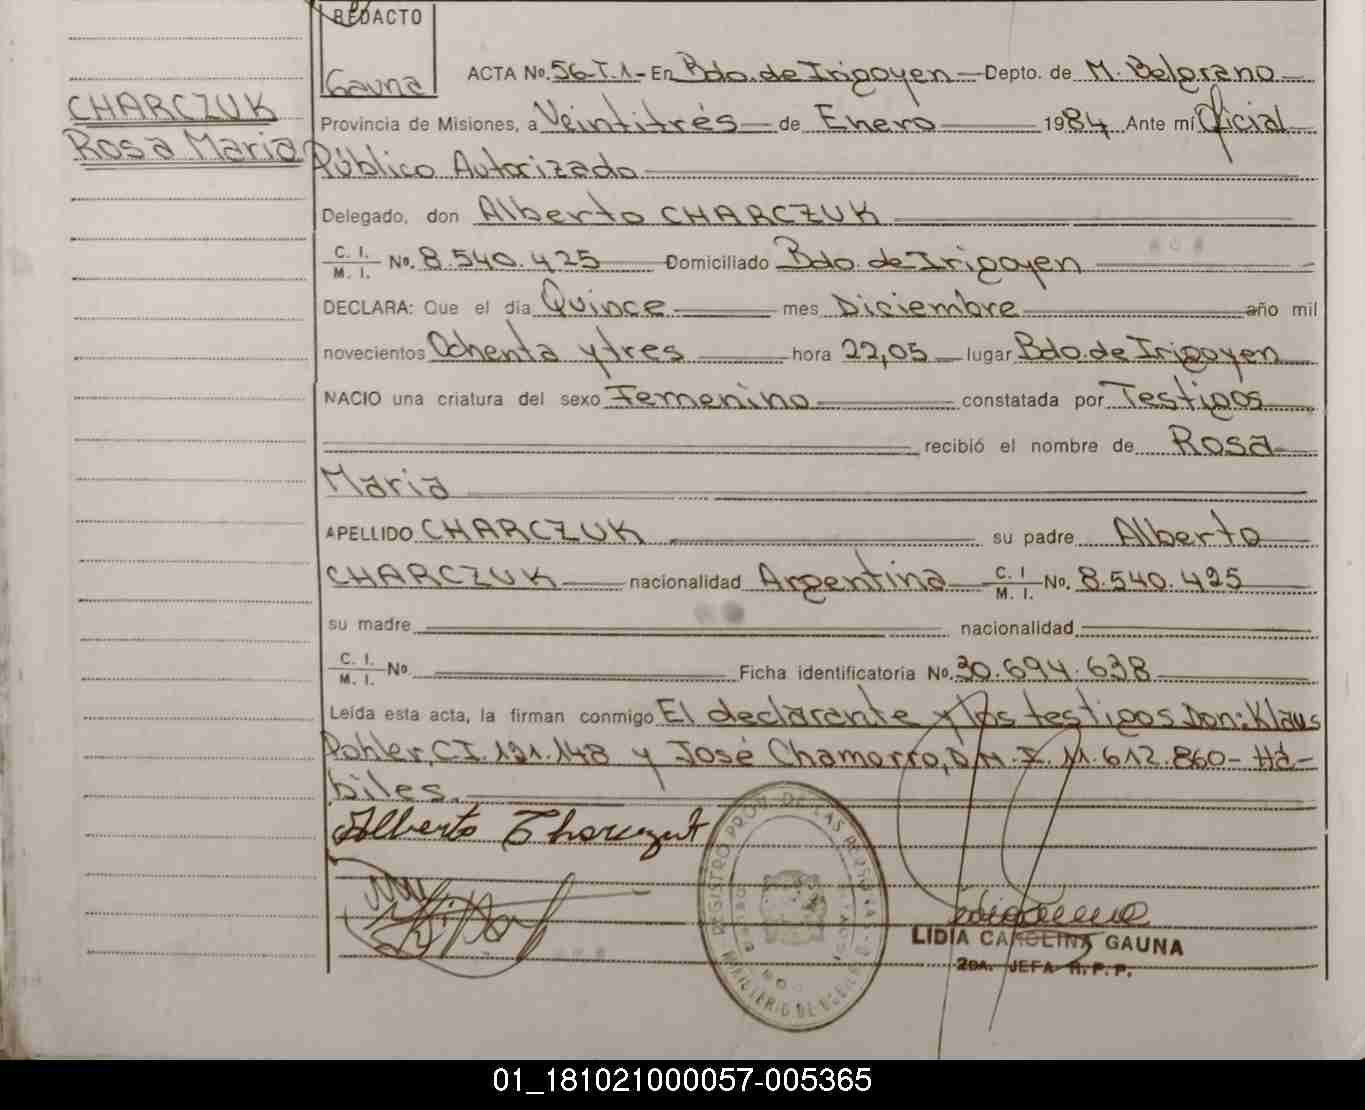 REDACTO
Gauna
ACTA No. 56-T.1- En Bdo. de Irigoyen Depto. de M. Belgrano
CHARCZUK
Rosa Maria
Provincia de Misiones, a Veintitrés de Enero 1984 Ante mí Oficial
Público Autorizado
Delegado, don Alberto CHARCZUK
C. I. M. I. No. 8.540.425 Domiciliado Bdo. de Irigoyen
DECLARA: Que el día Quince mes Diciembre año mil
novecientos Ochenta y tres hora 22,05 lugar Bdo. de Irigoyen
NACIO una criatura del sexo Femenino constatada por Testigos
recibió el nombre de Rosa
Maria
APELLIDO CHARCZUK su padre Alberto
CHARCZUK nacionalidad Argentina C. I M. I. No. 8.540.425
su madre nacionalidad
C. I. M. I. No Ficha identificatoria No. 30.694.638
Leída esta acta, la firman conmigo El declarante y los testigos Don: Klaus
Pohler, C.I. 121.148 y José Chamorro, D.N.I. M. 612.860- Há-
biles.
Alberto Charczuk
REGISTRO PROV. DE LAS PERSONAS
MINISTERIO DE
LIDIA CAROLINA GAUNA
2DA. JEFA R.P.P.
01_181021000057-005365